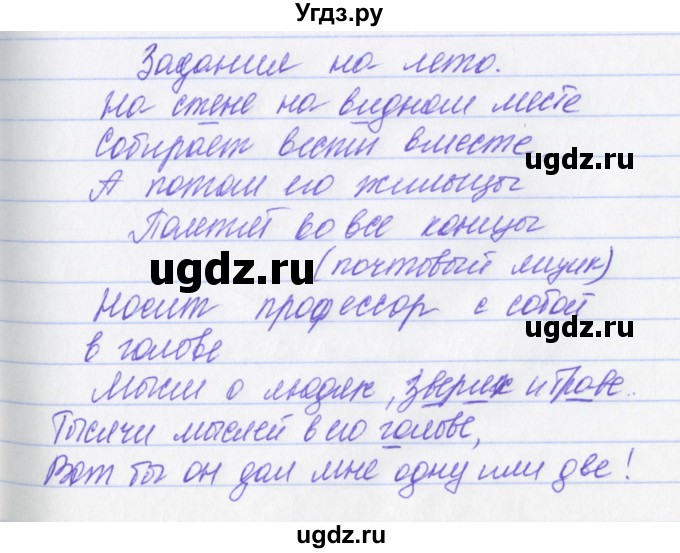 Угдз.ру
Задания на лето.
На стене на видном месте
Собирает вести вместе
ugdz.ru
А потом его жильцы
Полетят во все концы
ugdz.ru
(почтовый ящик)
Носит профессор с собой
ugdz.ru
в голове
Мысли о людях, зверях и траве..
Тысячи мыслей в его голове,
Вот бы он дал мне одну или две!
ugdz.ru